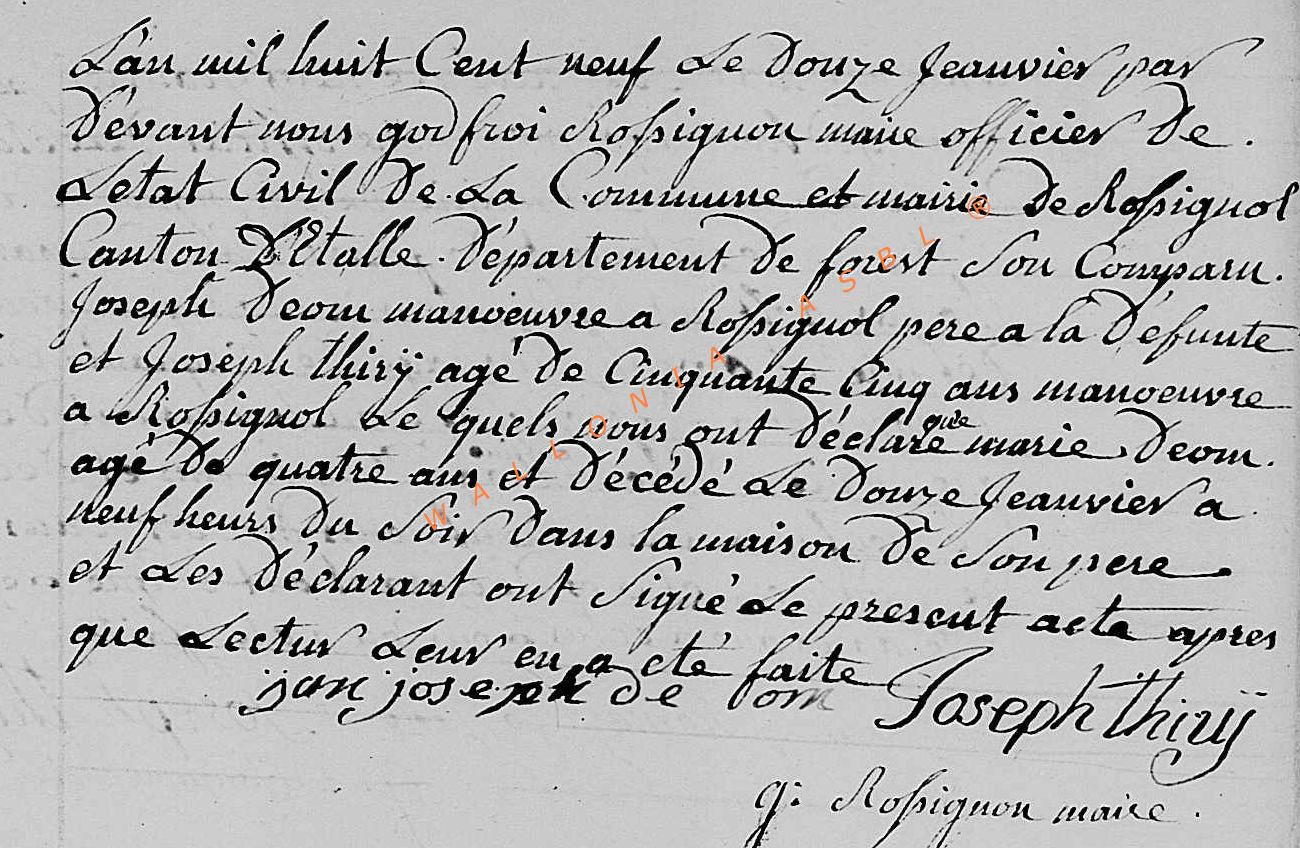 L'an mil huit Cent neuf Le Douze Jeanvier par
Dévant nous godfroi Roßignon maire officier De .
Letat Civil De La Commune et mairie De Roßignol
Canton D'Etalle . Département De forest Son Comparu .
Joseph Deom manoeuvre a Roßignol pere a la Défunte
et Joseph thirÿ agé De Cinquante Cinq ans manoeuvre
a Roßignol Le quels nous ont Déclaré que marie Deom .
agé De quatre ans et Décédé Le Douze Jeanvier a
neuf heurs Du Soir Dans la maison De Son pere
et Les Déclarant ont Signé Le present acte apres
que Lectur Leur en a eté faite
jan joseph de om Joseph thirÿ
g: Roßignon maire .
WALLONIA ASBL ®